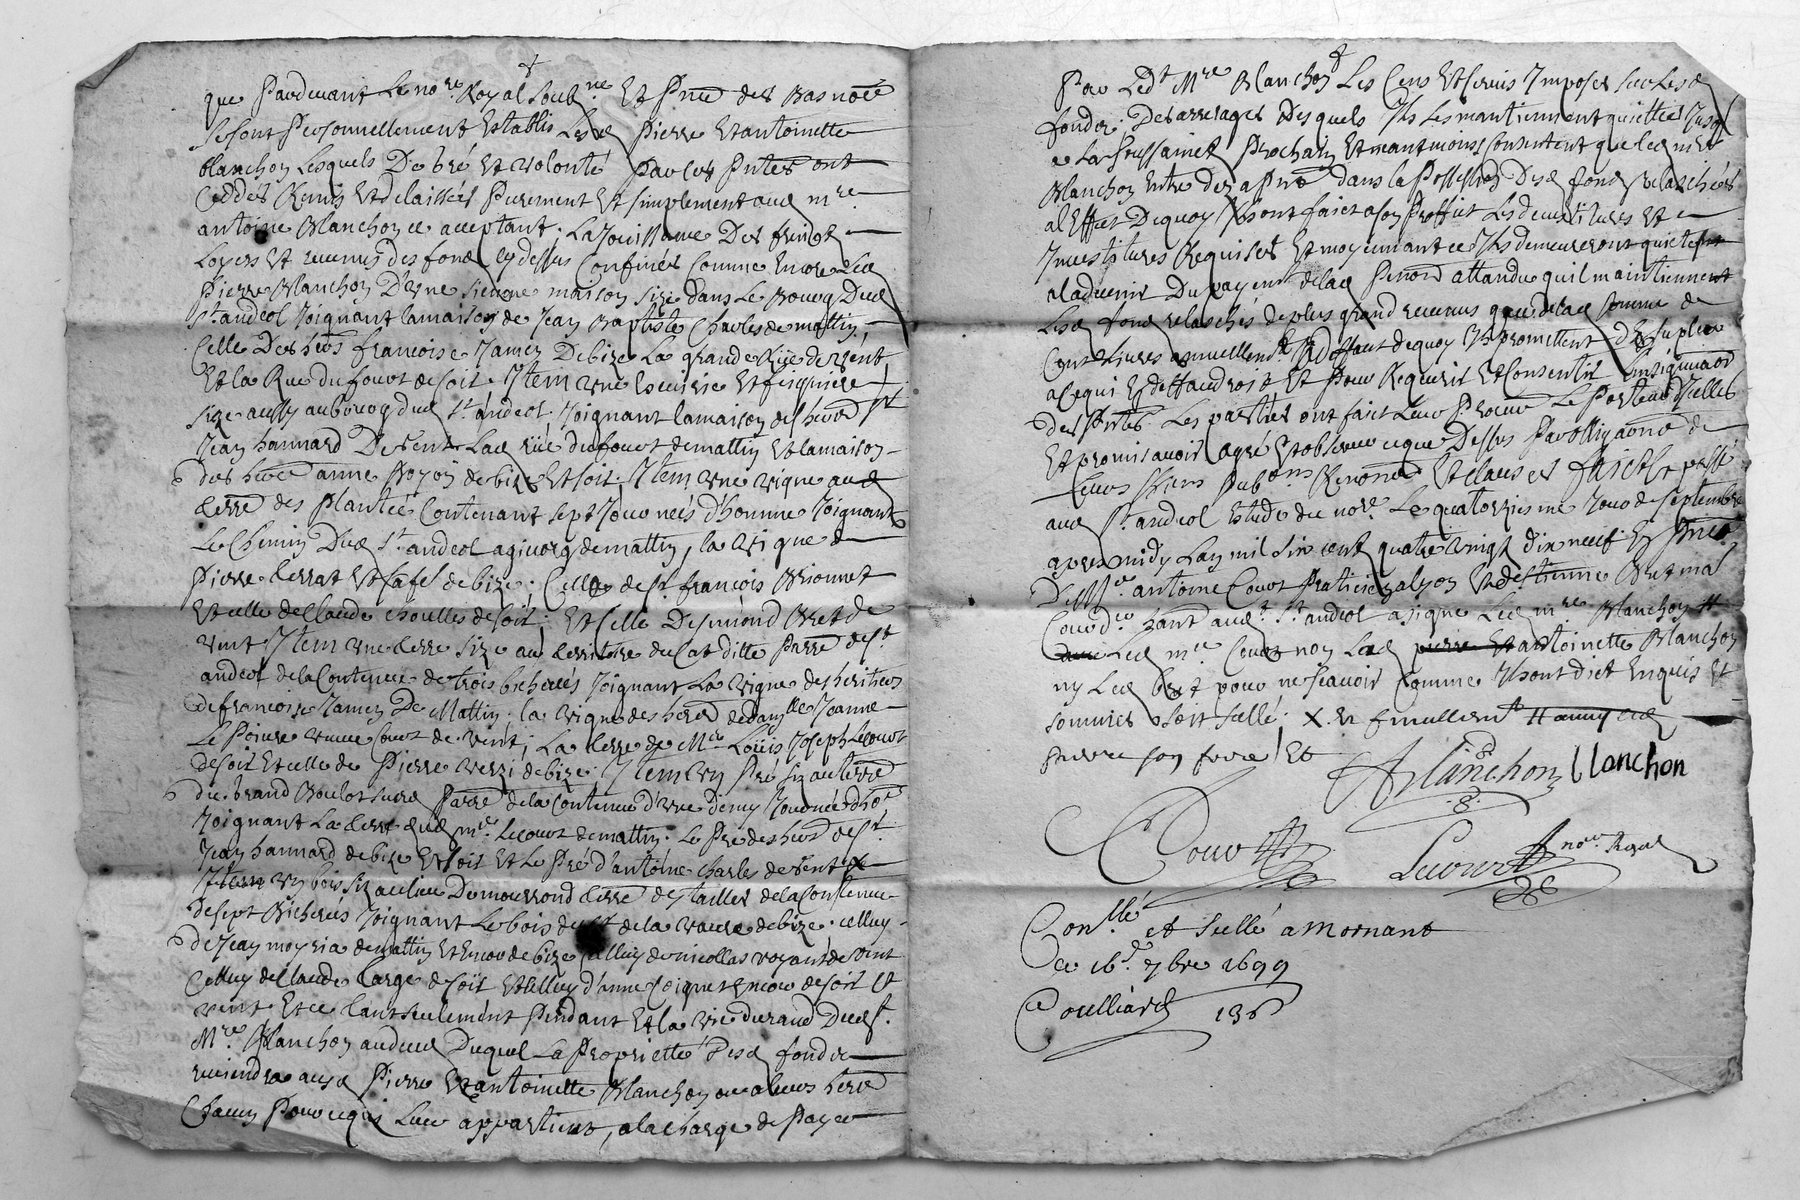 que Pardevant Le no.re Royal soub.ne Et P.nts des bas no.és
se sont Personnellement Establis Lesd Pierre Et antoinette
blanchon Lesquels De gré Et volonté Par ces P.ntes ont
Ceddés Remis Et delaissés Purement Et simplement aud m.re
antoine Blanchon ce acceptant La Jouissance Des fruicts
Loyers Et revenus des fondz cy dessus Confinés Comme Encore Led
Pierre Blanchon D'une sienne maison size dans Le Bourg Dud
s.t andeol Joignant la maison de Jean Baptiste Charles de mattin
Celle Des hers francoise Jamen De bize La grande Rüe de vent
Et la Rue du fourt de soir. Item une Escuirie Et feigniere
size aussy au bourg dud s.t andeol Joignant la maison des her.s s.r
Jean hannard De vent Lad rüe du fourt de mattin Et la maison
des her.s anne Poyon de bize Et soir. Item une vigne aud
terre des Plantée Contenant sept Journées d'homme Joignant
Le Chemin Dud s.t andeol a givorg de mattin, la vigne de
Pierre ferrat de bize, Celle de s.r françois Brionnet
Et celle de Claude de soir; Et Celle Desmond Bret de
vent Item une terre size au territoire du Parre de s.t
andeol de la Contenue de trois bicherés Joignant La vigne des heritiers
de francoise Jamen De Mattin, la vigne des her.s de dam.lle Jeanne
Le Poivre veuve Court de vent; La terre de M.re Loüis Joseph Lecourt
de soir Et celle de Pierre verzi de bize; Item un Pré siz au terre
du brand Boulot sur Parre de la Contenue d'une demy Journée d'hoe
Joignant La terre dud m.re Lecourt de mattin. Le Pré des hers de s.r
Jean hannard de bize Et soir Et Le Pré d'antoine Charles de vent
Item un bois siz au lieu De mourrond terre de taillés de la Contenue
De sept Bicherés Joignant Le bois du s.r de la vaure de bize; celluy
de Jean moyria de mattin Et Encor de bize Celluy de nicollas voyant de vent
Celluy de Claude large de soir Et celluy d'anne Encor de soir Et
vent Et ce tant seulement Pendant Et la vie durand Dud s.r
M.re Blanchon au deced Duquel La Proprietté Desd fondz
reviendra ausd Pierre Et antoinette Blanchon ou a leurs hers
Chacun Pour ce qui Leur appartient, a la charge de Payer
Par Led.t M.re Blanchon Les Cens Et servis Imposés sur Lesd
fondz. Des arrerages Desquels Ils Les maintiennent quittes Jusq
a La Toussainct Prochain Et neantmoins Consentent que led m.re
Blanchon Entre des a P.nt dans la Possession Desd fondz relaschés
a l'Effect Dequoy Ils ont faict a son Proffict Les devestitures Et
Investitures Requises Et moyennant ce Ils demeureront quictes
a l'advenir Du payem.t de lad Pension attandu qu'il maintiennent
Lesd fondz relaschés de plus grand revenus que de lad somme de
Cent livres annuellem.t a deffaut dequoy Ils promettent d'y supleer
a ce qui deffaudroit Et Pour Requerir Et Consentir L'insignuaon
des P.ntes Les parties ont faict Leur Procur Le Porteur d'Icelles
Et promis avoir agré Et observer ce que Dessus Par obligaon de
Leurs biens Pub.ons Renonc.s Et clauses faict Et passé
aud s.t andeol Estude du no.re Le quatorziesme Jour de septembre
apres midy L'an mil six cent quatre vingt dix neuf En P.nce
De M.re antoine Court Praticien a lyon Et d'Estienne Bret m.al
aud.t s.t andeol a signé Led m.re Blanchon
Led m.re Court non Lad Pierre Et antoinette Blanchon
ny Led bret pour ne scavoir Comme Ils ont dict Enquis Et
sommés soit sellé. X. Et
Pierre son frere Et
A Blanchon blanchon
Court
Lecourt no.re Royal
Con.llé et sellé a Mornant
Ce 16.e 7bre 1699